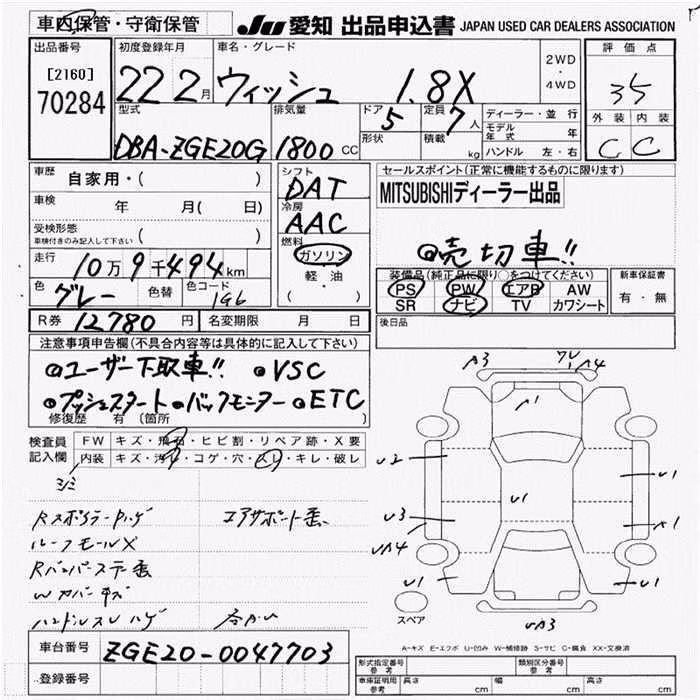 車両保管・守衛保管
JU 愛知 出品申込書 JAPAN USED CAR DEALERS ASSOCIATION
出品番号
[2160]
70284
初度登録年月
22 2月
車名・グレード
ウィッシュ 1.8X
2WD
・
4WD
評価点
35
型式
DBA-ZGE20G
排気量
1800 CC
ドア
5
形状
定員
7人
積載
kg
ディーラー・並行
モデル年式 年
ハンドル 左・右
外装 内装
C C
車歴
自家用・( )
車検
年 月( 日)
受検形態
車検付きのみ記入して下さい ( )
走行
10万9千494km
色
グレー
色替
色コード
1G6
R券 12780 円
名変期限 月 日
シフト
DAT
冷房
AAC
燃料
ガソリン
・
軽・油
・
( )
セールスポイント(正常に機能するものに限ります)
MITSUBISHIディーラー出品
◎売切車!!
装備品(純正品に限り○をつけてください)
PS PW エアB AW
SR ナビ TV カワシート
新車保証書
有・無
後日品
注意事項申告欄(不具合内容等は具体的に記入して下さい)
◎ユーザー下取車!! ◎VSC
◎プッシュスタート ◎バックモニター ◎ETC
修復歴 有 (箇所 )
検査員記入欄
FW キズ・飛石・ヒビ割・リペア跡・X要
内装 キズ・汚レ・コゲ・穴・スレ・キレ・破レ
シミ
Rスポイラーハゲ
ルーフモールX
Wカバーキズ
ハンドルスレハゲ
A3
A4
A1
U2
U1
U1
U3
A1
UA4
U1
U1
UA3
スペア
A-キズ E-エクボ U-凹ミ W-補修跡 S-サビ C-腐食 XX-交換済
車台番号 ZGE20-0047703
登録番号
形式指定番号
参考
類別区分番号
参考
車庫証明用
参考
高さ cm 幅 cm 高さ cm